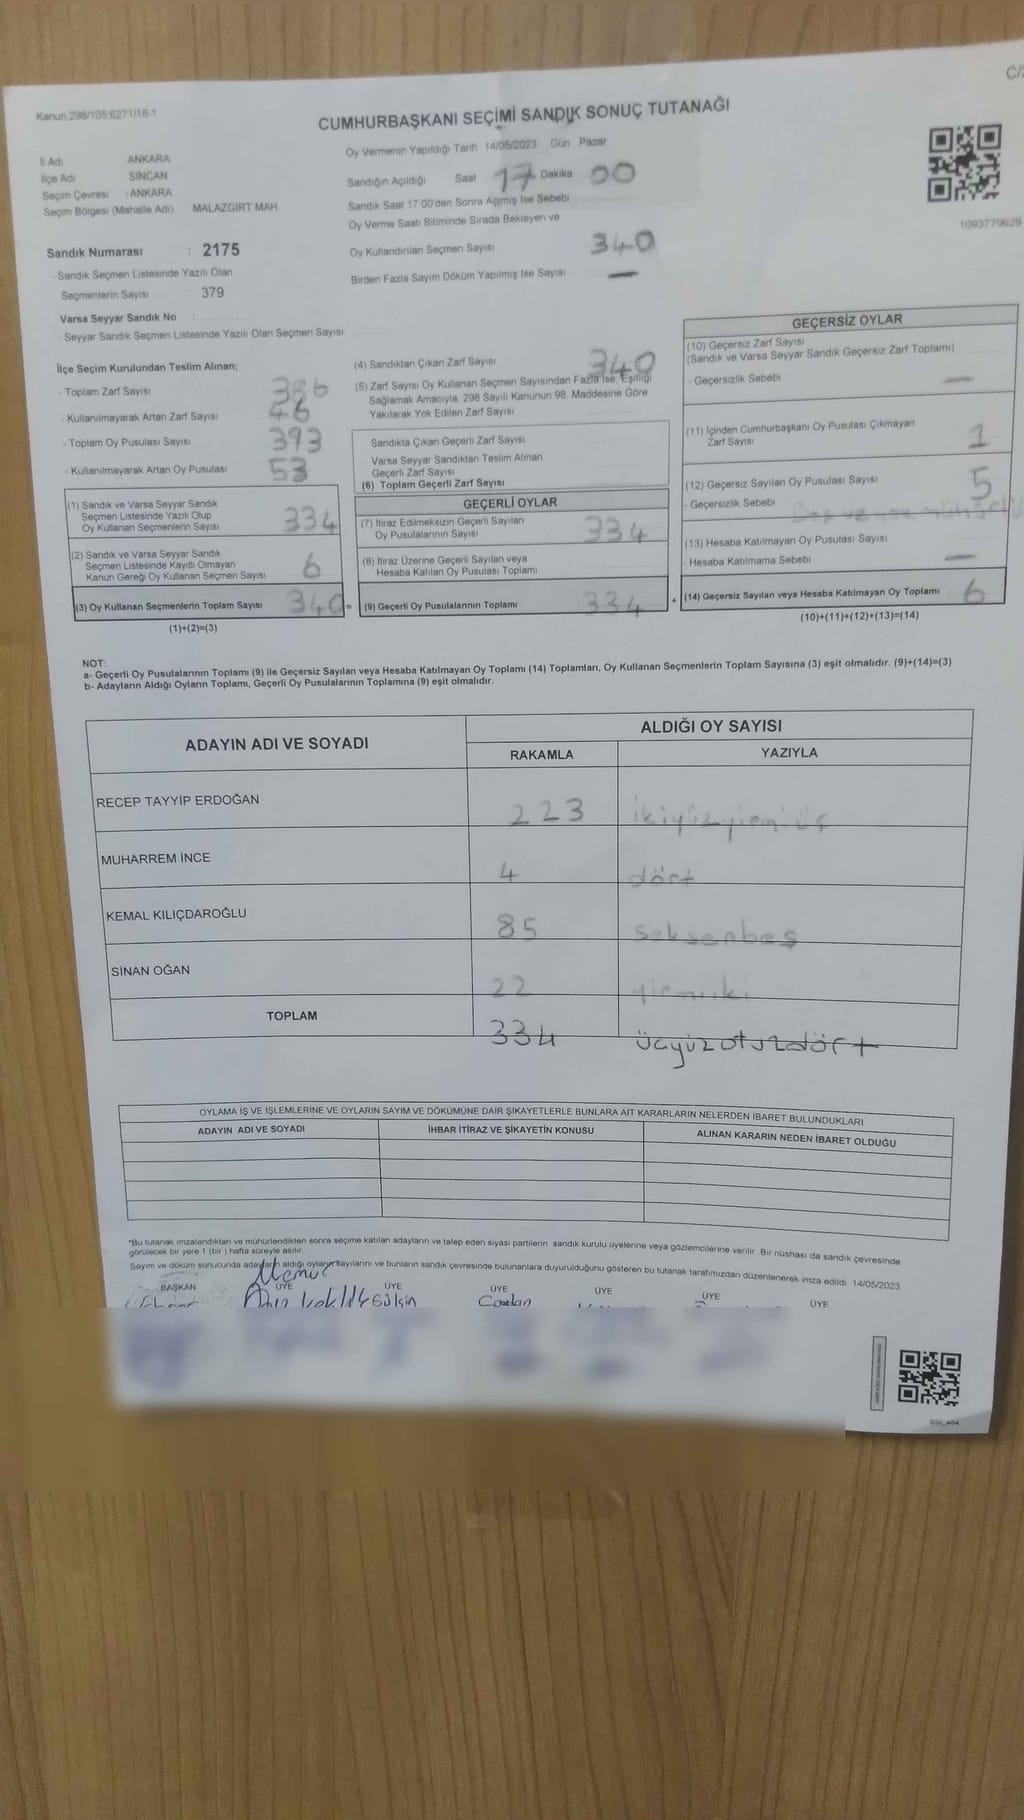 Kanun.298/105;6271/16-1
C/
CUMHURBAŞKANI SEÇİMİ SANDIK SONUÇ TUTANAĞI
İl Adı ANKARA
İlçe Adı SİNCAN
Seçim Çevresi : ANKARA
Seçim Bölgesi (Mahalle Adı) MALAZGİRT MAH.
Oy Vermenin Yapıldığı Tarih 14/05/2023 Gün Pazar
Sandığın Açıldığı Saat 17 Dakika 00
Sandık Saat 17:00'den Sonra Açılmış İse Sebebi
Oy Verme Saati Bitiminde Sırada Bekleyen ve
Oy Kullandırılan Seçmen Sayısı 340
Birden Fazla Sayım Döküm Yapılmış İse Sayısı —
1093779629
Sandık Numarası : 2175
- Sandık Seçmen Listesinde Yazılı Olan
Seçmenlerin Sayısı : 379
Varsa Seyyar Sandık No :
- Seyyar Sandık Seçmen Listesinde Yazılı Olan Seçmen Sayısı
İlçe Seçim Kurulundan Teslim Alınan;
- Toplam Zarf Sayısı 386
- Kullanılmayarak Artan Zarf Sayısı 46
- Toplam Oy Pusulası Sayısı 393
- Kullanılmayarak Artan Oy Pusulası 53
(1) Sandık ve Varsa Seyyar Sandık
Seçmen Listesinde Yazılı Olup
Oy Kullanan Seçmenlerin Sayısı 334
(2) Sandık ve Varsa Seyyar Sandık
Seçmen Listesinde Kayıtlı Olmayan
Kanun Gereği Oy Kullanan Seçmen Sayısı 6
(3) Oy Kullanan Seçmenlerin Toplam Sayısı 340 =
(1)+(2)=(3)
(4) Sandıktan Çıkan Zarf Sayısı 340
(5) Zarf Sayısı Oy Kullanan Seçmen Sayısından Fazla İse, Eşitliği
Sağlamak Amacıyla; 298 Sayılı Kanunun 98. Maddesine Göre
Yakılarak Yok Edilen Zarf Sayısı
Sandıkta Çıkan Geçerli Zarf Sayısı
Varsa Seyyar Sandıktan Teslim Alınan
Geçerli Zarf Sayısı
(6) Toplam Geçerli Zarf Sayısı
GEÇERLİ OYLAR
(7) İtiraz Edilmeksizin Geçerli Sayılan
Oy Pusulalarının Sayısı 334
(8) İtiraz Üzerine Geçerli Sayılan veya
Hesaba Katılan Oy Pusulası Toplamı
(9) Geçerli Oy Pusulalarının Toplamı 334 +
GEÇERSİZ OYLAR
(10) Geçersiz Zarf Sayısı
(Sandık ve Varsa Seyyar Sandık Geçersiz Zarf Toplamı)
- Geçersizlik Sebebi —
(11) İçinden Cumhurbaşkanı Oy Pusulası Çıkmayan
Zarf Sayısı 1
(12) Geçersiz Sayılan Oy Pusulası Sayısı 5
- Geçersizlik Sebebi
(13) Hesaba Katılmayan Oy Pusulası Sayısı
- Hesaba Katılmama Sebebi —
(14) Geçersiz Sayılan veya Hesaba Katılmayan Oy Toplamı 6
(10)+(11)+(12)+(13)=(14)
NOT:
a- Geçerli Oy Pusulalarının Toplamı (9) ile Geçersiz Sayılan veya Hesaba Katılmayan Oy Toplamı (14) Toplamları, Oy Kullanan Seçmenlerin Toplam Sayısına (3) eşit olmalıdır. (9)+(14)=(3)
b- Adayların Aldığı Oyların Toplamı, Geçerli Oy Pusulalarının Toplamına (9) eşit olmalıdır.
ADAYIN ADI VE SOYADI
ALDIĞI OY SAYISI
RAKAMLA YAZIYLA
RECEP TAYYİP ERDOĞAN 223 ikiyüzyirmiüç
MUHARREM İNCE 4 dört
KEMAL KILIÇDAROĞLU 85 seksenbeş
SİNAN OĞAN 22 yirmiiki
TOPLAM 334 üçyüzotuzdört
OYLAMA İŞ VE İŞLEMLERİNE VE OYLARIN SAYIM VE DÖKÜMÜNE DAİR ŞİKAYETLERLE BUNLARA AİT KARARLARIN NELERDEN İBARET BULUNDUKLARI
ADAYIN ADI VE SOYADI İHBAR İTİRAZ VE ŞİKAYETİN KONUSU ALINAN KARARIN NEDEN İBARET OLDUĞU
*Bu tutanak imzalandıktan ve mühürlendikten sonra seçime katılan adayların ve talep eden siyasi partilerin sandık kurulu üyelerine veya gözlemcilerine verilir. Bir nüshası da sandık çevresinde
görülecek bir yere 1 (bir) hafta süreyle asılır.
Sayım ve döküm sonucunda adayların aldığı oyların sayılarını ve bunların sandık çevresinde bulunanlara duyurulduğunu gösteren bu tutanak tarafımızdan düzenlenerek imza edildi. 14/05/2023
Memur
BAŞKAN ÜYE ÜYE ÜYE ÜYE ÜYE ÜYE
Gülşin Candan